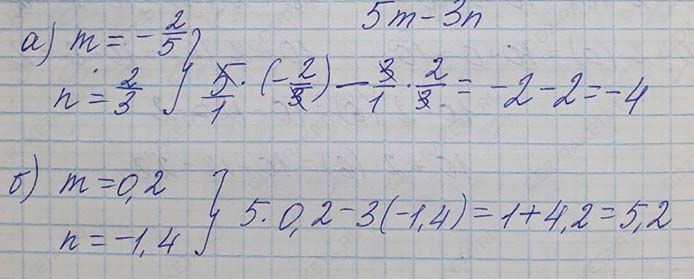 5m - 3n
а) m = -2/5
n = 2/3 } 5/1 · (-2/3) - 3/1 · 2/3 = -2 - 2 = -4
б) m = 0,2
n = -1,4 } 5 · 0,2 - 3(-1,4) = 1 + 4,2 = 5,2